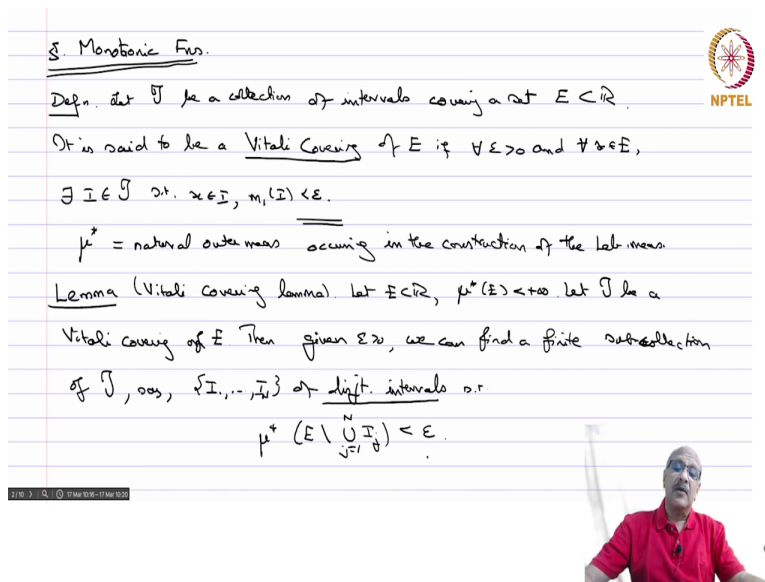 §. Monotonic Fns.
NPTEL
Defn. Let 𝒥 be a collection of intervals covering a set E ⊂ ℝ.
It is said to be a Vitali Covering of E if ∀ ε>0 and ∀ x∈E,
∃ I ∈ 𝒥 s.t. x∈I, m₁(I) < ε.
μ* = natural outer meas occuring in the construction of the Leb. meas.
Lemma (Vitali covering lemma). Let E⊂ℝ, μ*(E) < +∞. Let 𝒥 be a
Vitali covering of E. Then given ε>0, we can find a finite subcollection
of 𝒥, say, {I₁, .., I_N} of disjt. intervals s.t.
μ* (E \ ∪_{j=1}^{N} I_j) < ε.
2/10 17 Mar 10:16 - 17 Mar 10:20